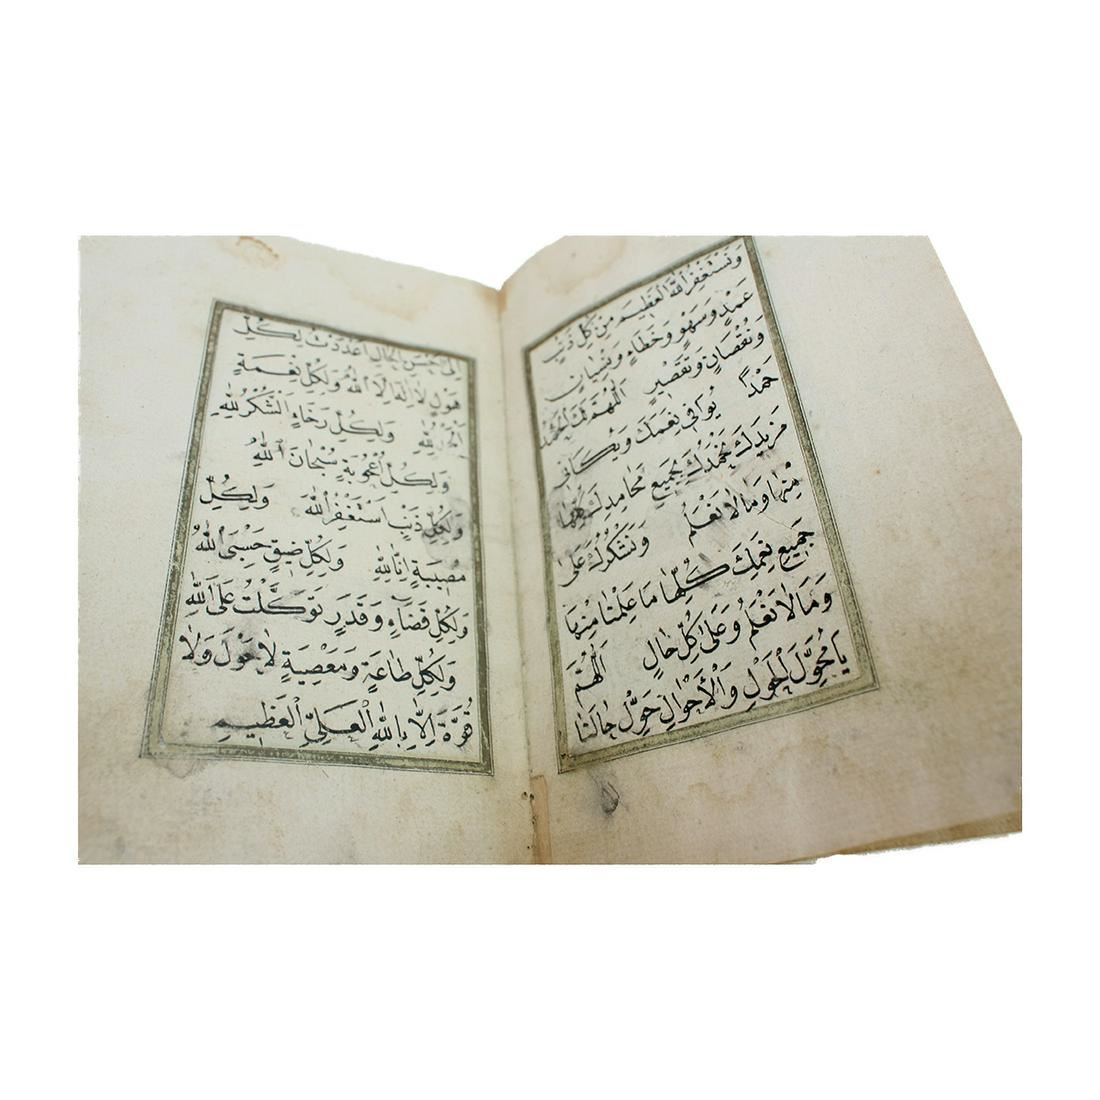 وَنَسْتَغْفِرُ اللّٰهَ الْعَظِيمَ مِنْ كُلِّ ذَنْبٍ
عَمْدٍ وَسَهْوٍ وَخَطَاءٍ وَنِسْيَانٍ
وَنُقْصَانٍ وَتَقْصِيرٍ اَللّٰهُمَّ لَكَ الْحَمْدُ
حَمْدًا يُوَافِي نِعَمَكَ وَيُكَافِي
مَزِيدَكَ نَحْمَدُكَ بِجَمِيعِ مَحَامِدِكَ كُلِّهَا
مِنْهَا وَمَا لَا نَعْلَمُ وَنَشْكُرُكَ عَلَى
جَمِيعِ نِعَمِكَ كُلِّهَا مَا عَلِمْنَا مِنْهَا
وَمَا لَا نَعْلَمُ وَعَلَى كُلِّ حَالٍ اَللّٰهُمَّ
يَا مُحَوِّلَ الْحَوْلِ وَالْأَحْوَالِ حَوِّلْ حَالَنَا
اِلَى اَحْسَنِ الْحَالِ اَعْدَدْتُ لِكُلِّ
هَوْلٍ لَا اِلٰهَ اِلَّا اللّٰهُ وَلِكُلِّ نِعْمَةٍ
اَلْحَمْدُ لِلّٰهِ وَلِكُلِّ رَخَاءٍ اَلشُّكْرُ لِلّٰهِ
وَلِكُلِّ اُعْجُوبَةٍ سُبْحَانَ اللّٰهِ
وَلِكُلِّ ذَنْبٍ اَسْتَغْفِرُ اللّٰهَ وَلِكُلِّ
مُصِيبَةٍ اِنَّا لِلّٰهِ وَلِكُلِّ ضِيقٍ حَسْبِيَ اللّٰهُ
وَلِكُلِّ قَضَاءٍ وَقَدَرٍ تَوَكَّلْتُ عَلَى اللّٰهِ
وَلِكُلِّ طَاعَةٍ وَمَعْصِيَةٍ لَا حَوْلَ وَلَا
قُوَّةَ اِلَّا بِاللّٰهِ الْعَلِيِّ الْعَظِيمِ